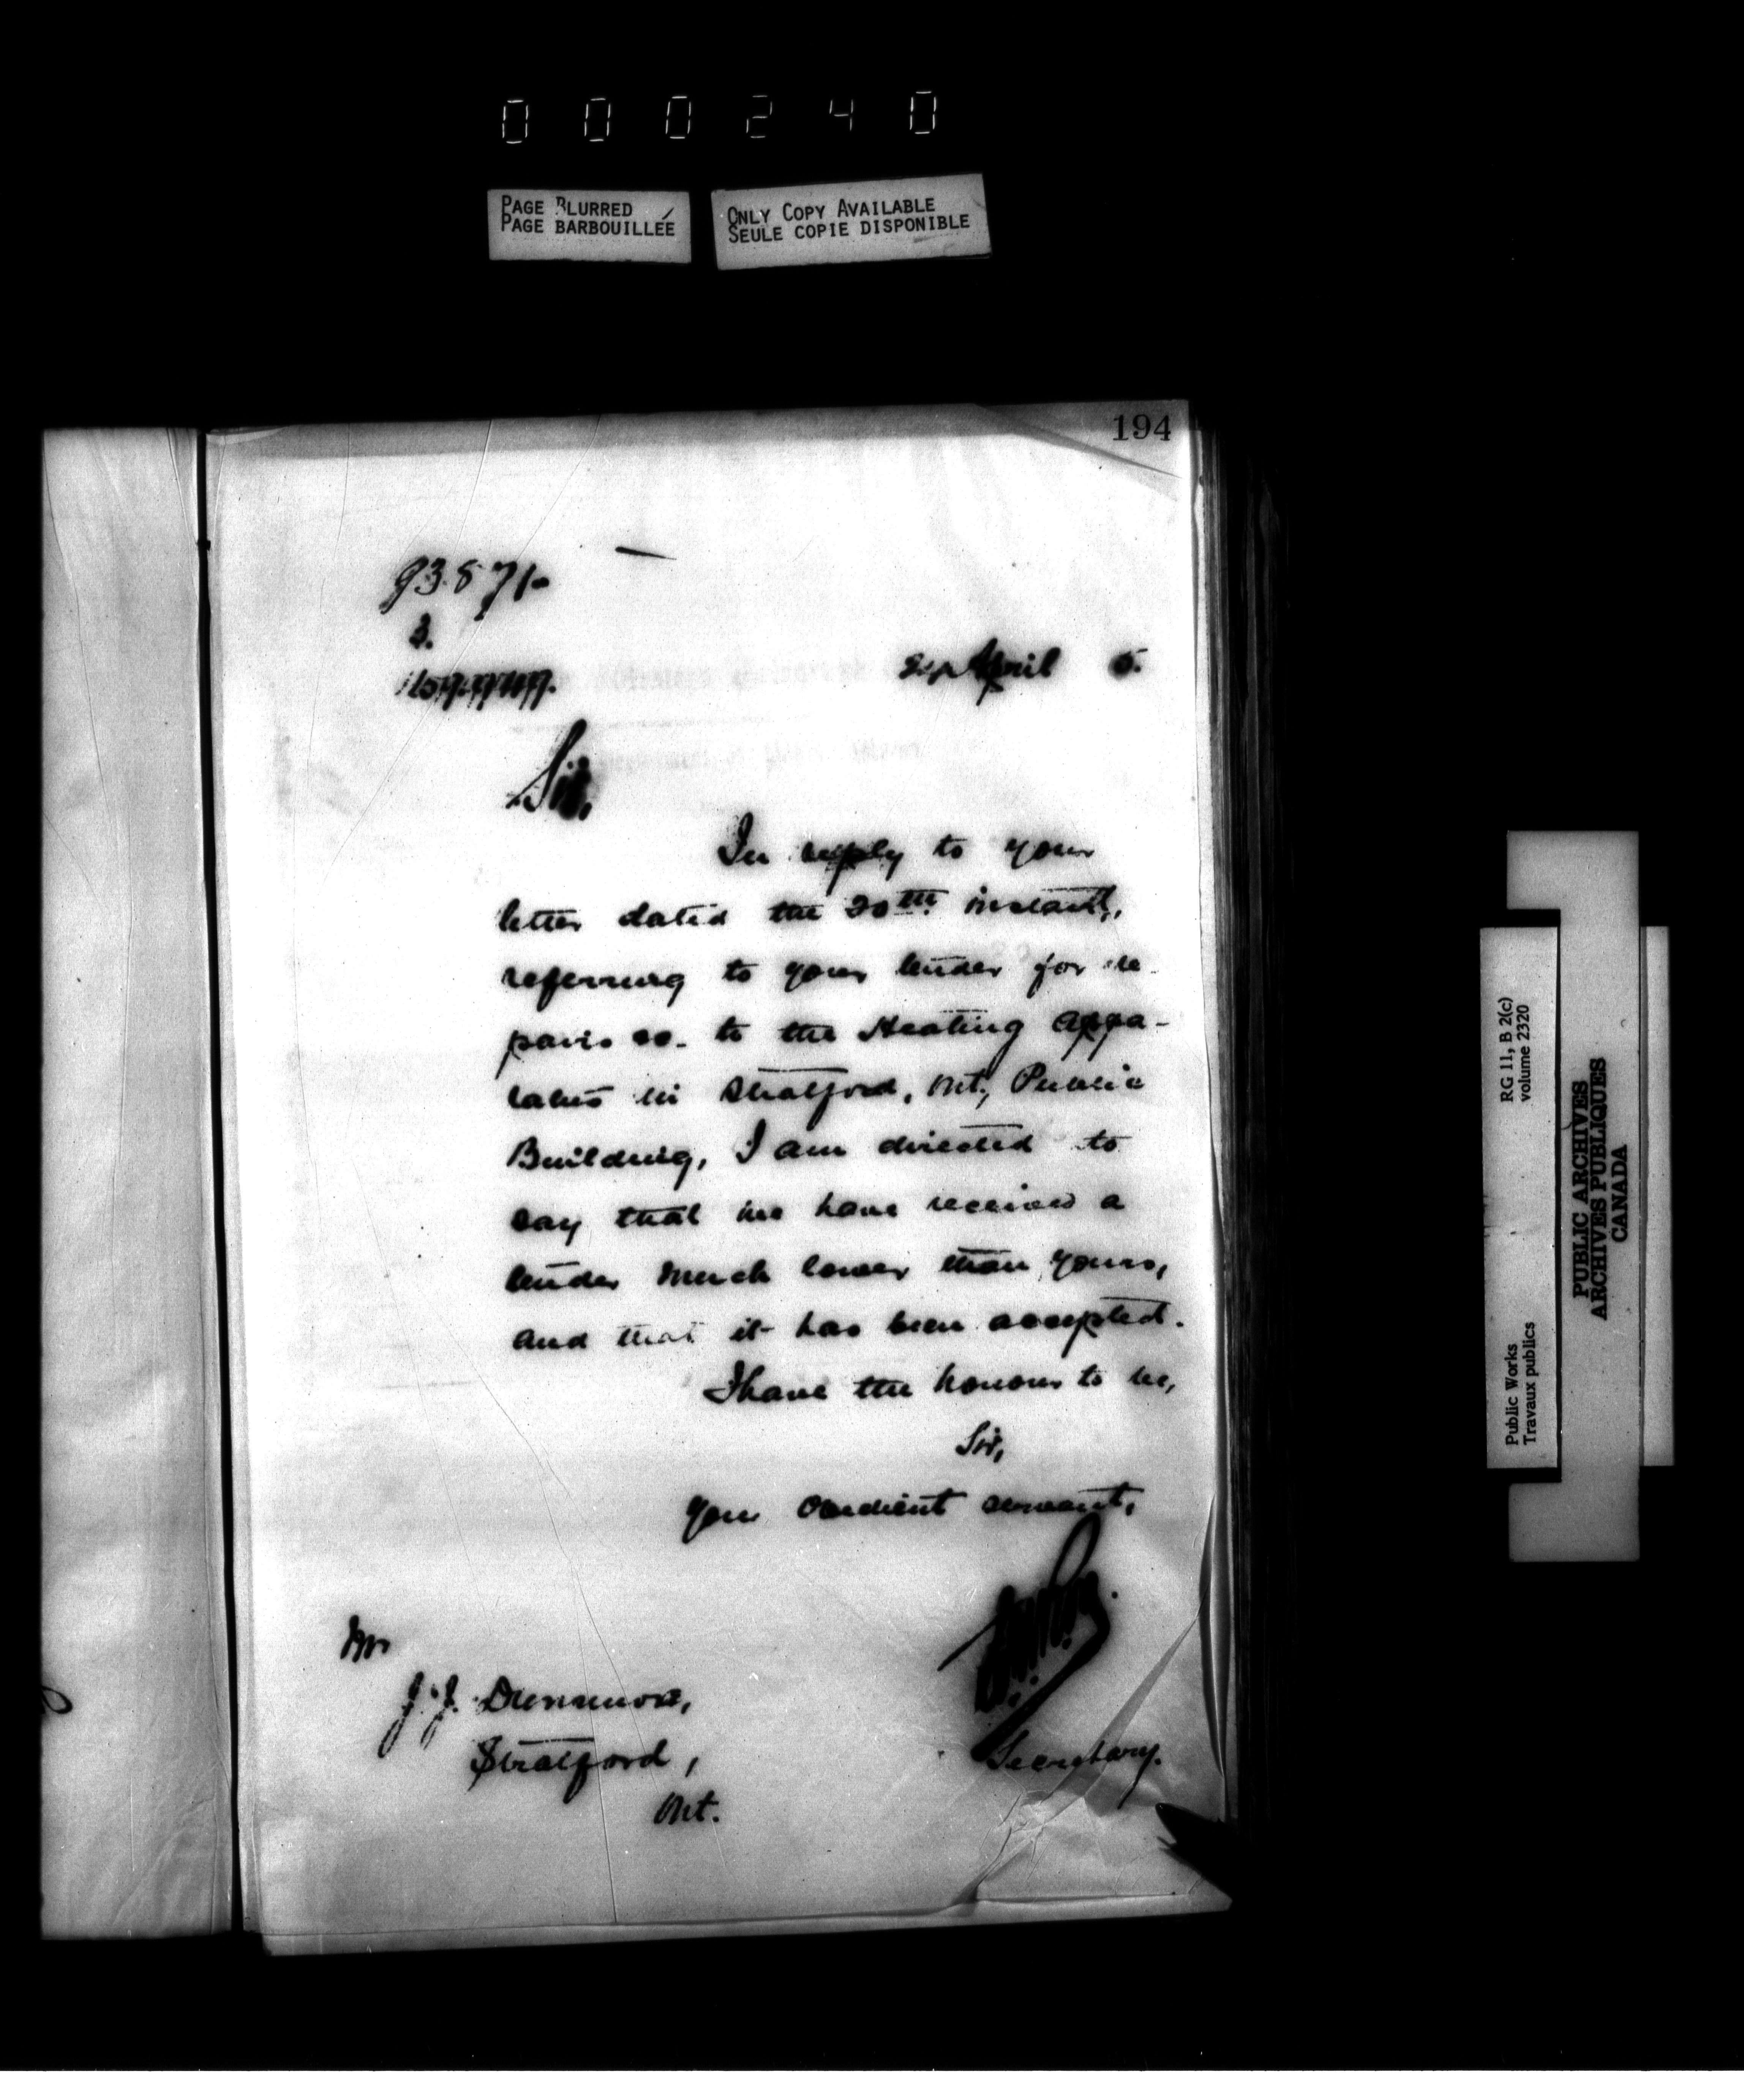 000240
PAGE BLURRED
PAGE BARBOUILLÉE
ONLY COPY AVAILABLE
SEULE COPIE DISPONIBLE
194
93871-
3.
April 5.
Sir,
In reply to your
letter dated the 20th instant,
referring to your tender for re-
pairs to the Heating appa-
ratus in Stratford, Ont., Public
Building, I am directed to
say that we have received a
tender much lower than yours,
and that it has been accepted.
I have the honour to be,
Sir,
Your obedient servant,
Secretary.
Mr
J. J. Dunsmore,
Stratford,
Ont.
RG 11, B 2(c)
volume 2320
Public Works
Travaux publics
PUBLIC ARCHIVES
ARCHIVES PUBLIQUES
CANADA